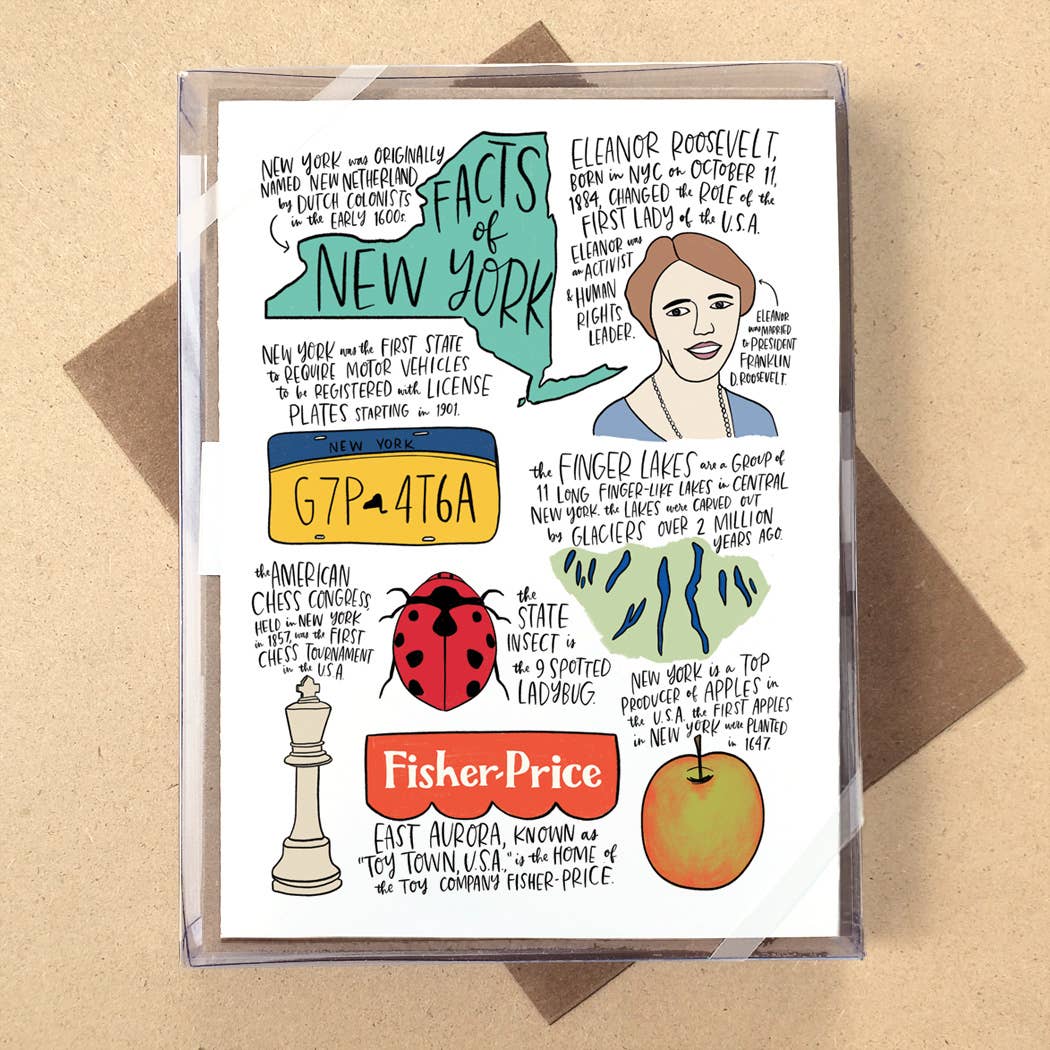 NEW YORK was ORIGINALLY
NAMED NEW NETHERLAND
by DUTCH COLONISTS
in the EARLY 1600s.
FACTS
of
NEW YORK
ELEANOR ROOSEVELT,
BORN in NYC on OCTOBER 11,
1884, CHANGED the ROLE of the
FIRST LADY of the U.S.A.
ELEANOR was
an ACTIVIST
& HUMAN
RIGHTS
LEADER.
ELEANOR
was MARRIED
to PRESIDENT
FRANKLIN
D. ROOSEVELT.
NEW YORK was the FIRST STATE
to REQUIRE MOTOR VEHICLES
to be REGISTERED with LICENSE
PLATES STARTING in 1901.
NEW YORK
G7P 4T6A
the FINGER LAKES are a GROUP of
11 LONG FINGER-LIKE LAKES in CENTRAL
NEW YORK. the LAKES were CARVED OUT
by GLACIERS OVER 2 MILLION
YEARS AGO.
the AMERICAN
CHESS CONGRESS,
HELD in NEW YORK
in 1857, was the FIRST
CHESS TOURNAMENT
in the U.S.A.
the
STATE
INSECT is
the 9 SPOTTED
LADYBUG.
NEW YORK is a TOP
PRODUCER of APPLES in
the U.S.A. the FIRST APPLES
in NEW YORK were PLANTED
in 1647.
Fisher-Price
EAST AURORA, KNOWN as
"TOY TOWN, U.S.A.," is the HOME of
the TOY COMPANY FISHER-PRICE.